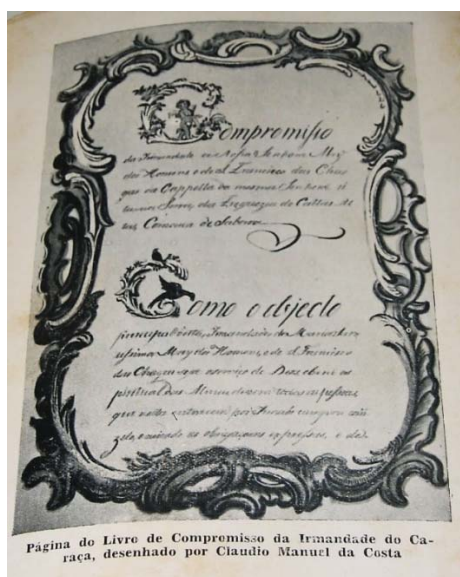 Compromisso
da Irmandade da Nossa Senhora May
dos Homens e de S. Francisco das Chagas
que na Cappella da mesma Senhora
Serra da Freguezia de Cattas Al
tas, Comarca de Sabara
Como o objecto
principal desta Irmandade da Maria San
tissima May dos Homens, e de S. Francisco
das Chagas, seja o serviço de Deos e bem es
piritual das Almas todas as pessoas,
que nella entrarem por Irmãos cumprirão com
zelo, e caridade as obrigaçoens expressas, e de
Página do Livro de Compromisso da Irmandade do Ca-
raça, desenhado por Claudio Manuel da Costa